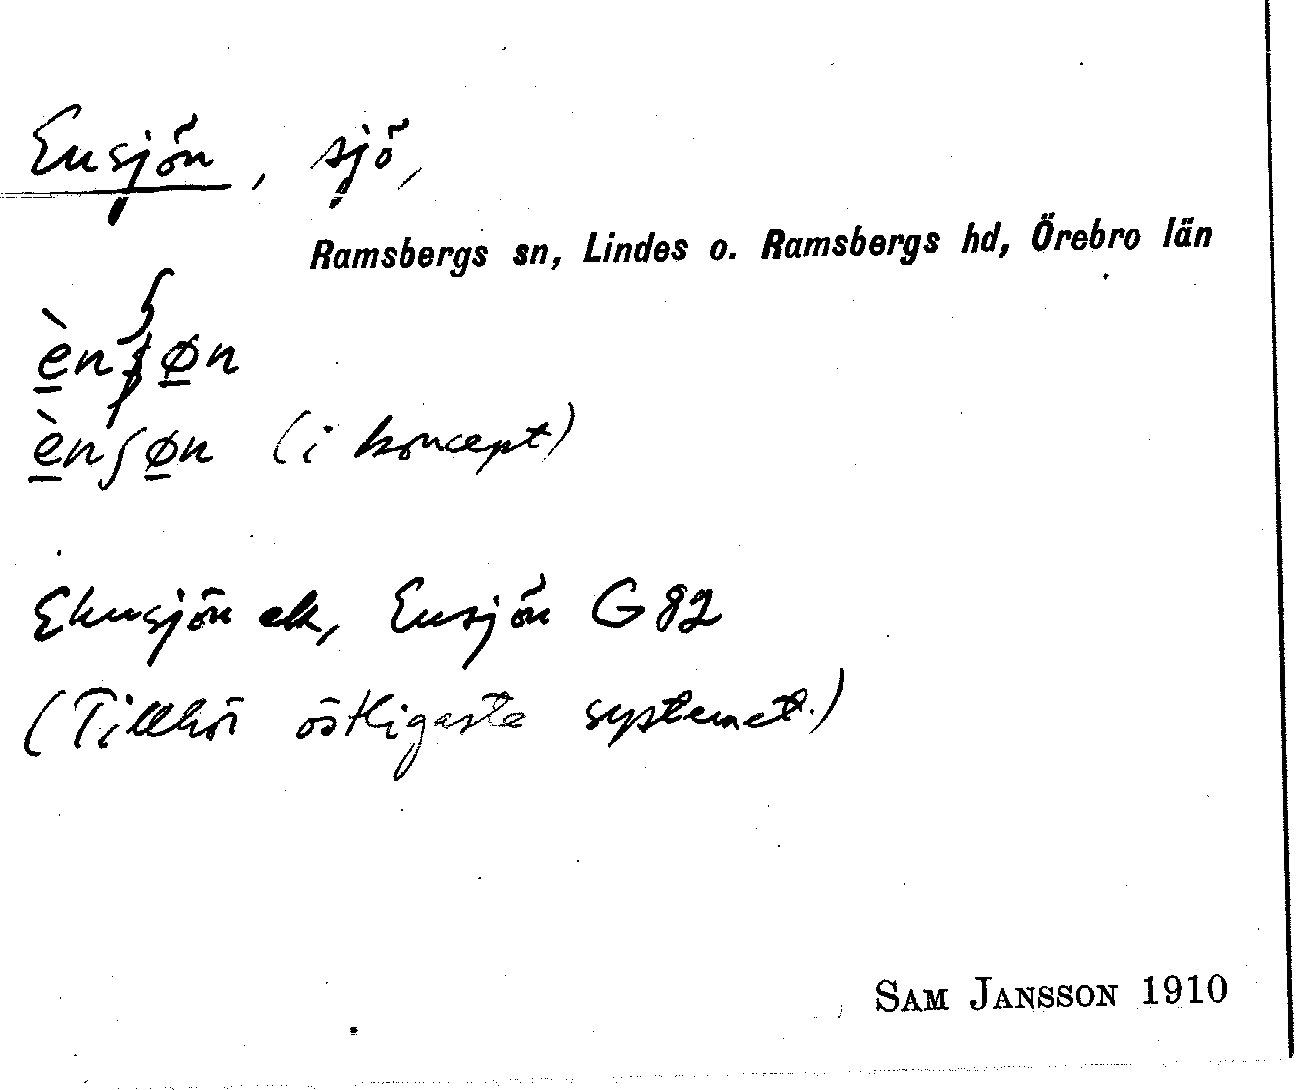 Ensjön, sjö,
Ramsbergs sn, Lindes o. Ramsbergs hd, Örebro län
ènʃøn
ènʃøn (i koncept)
Eknsjön el., Ensjön G 82
(Tillhör östligaste systemet.)
SAM JANSSON 1910